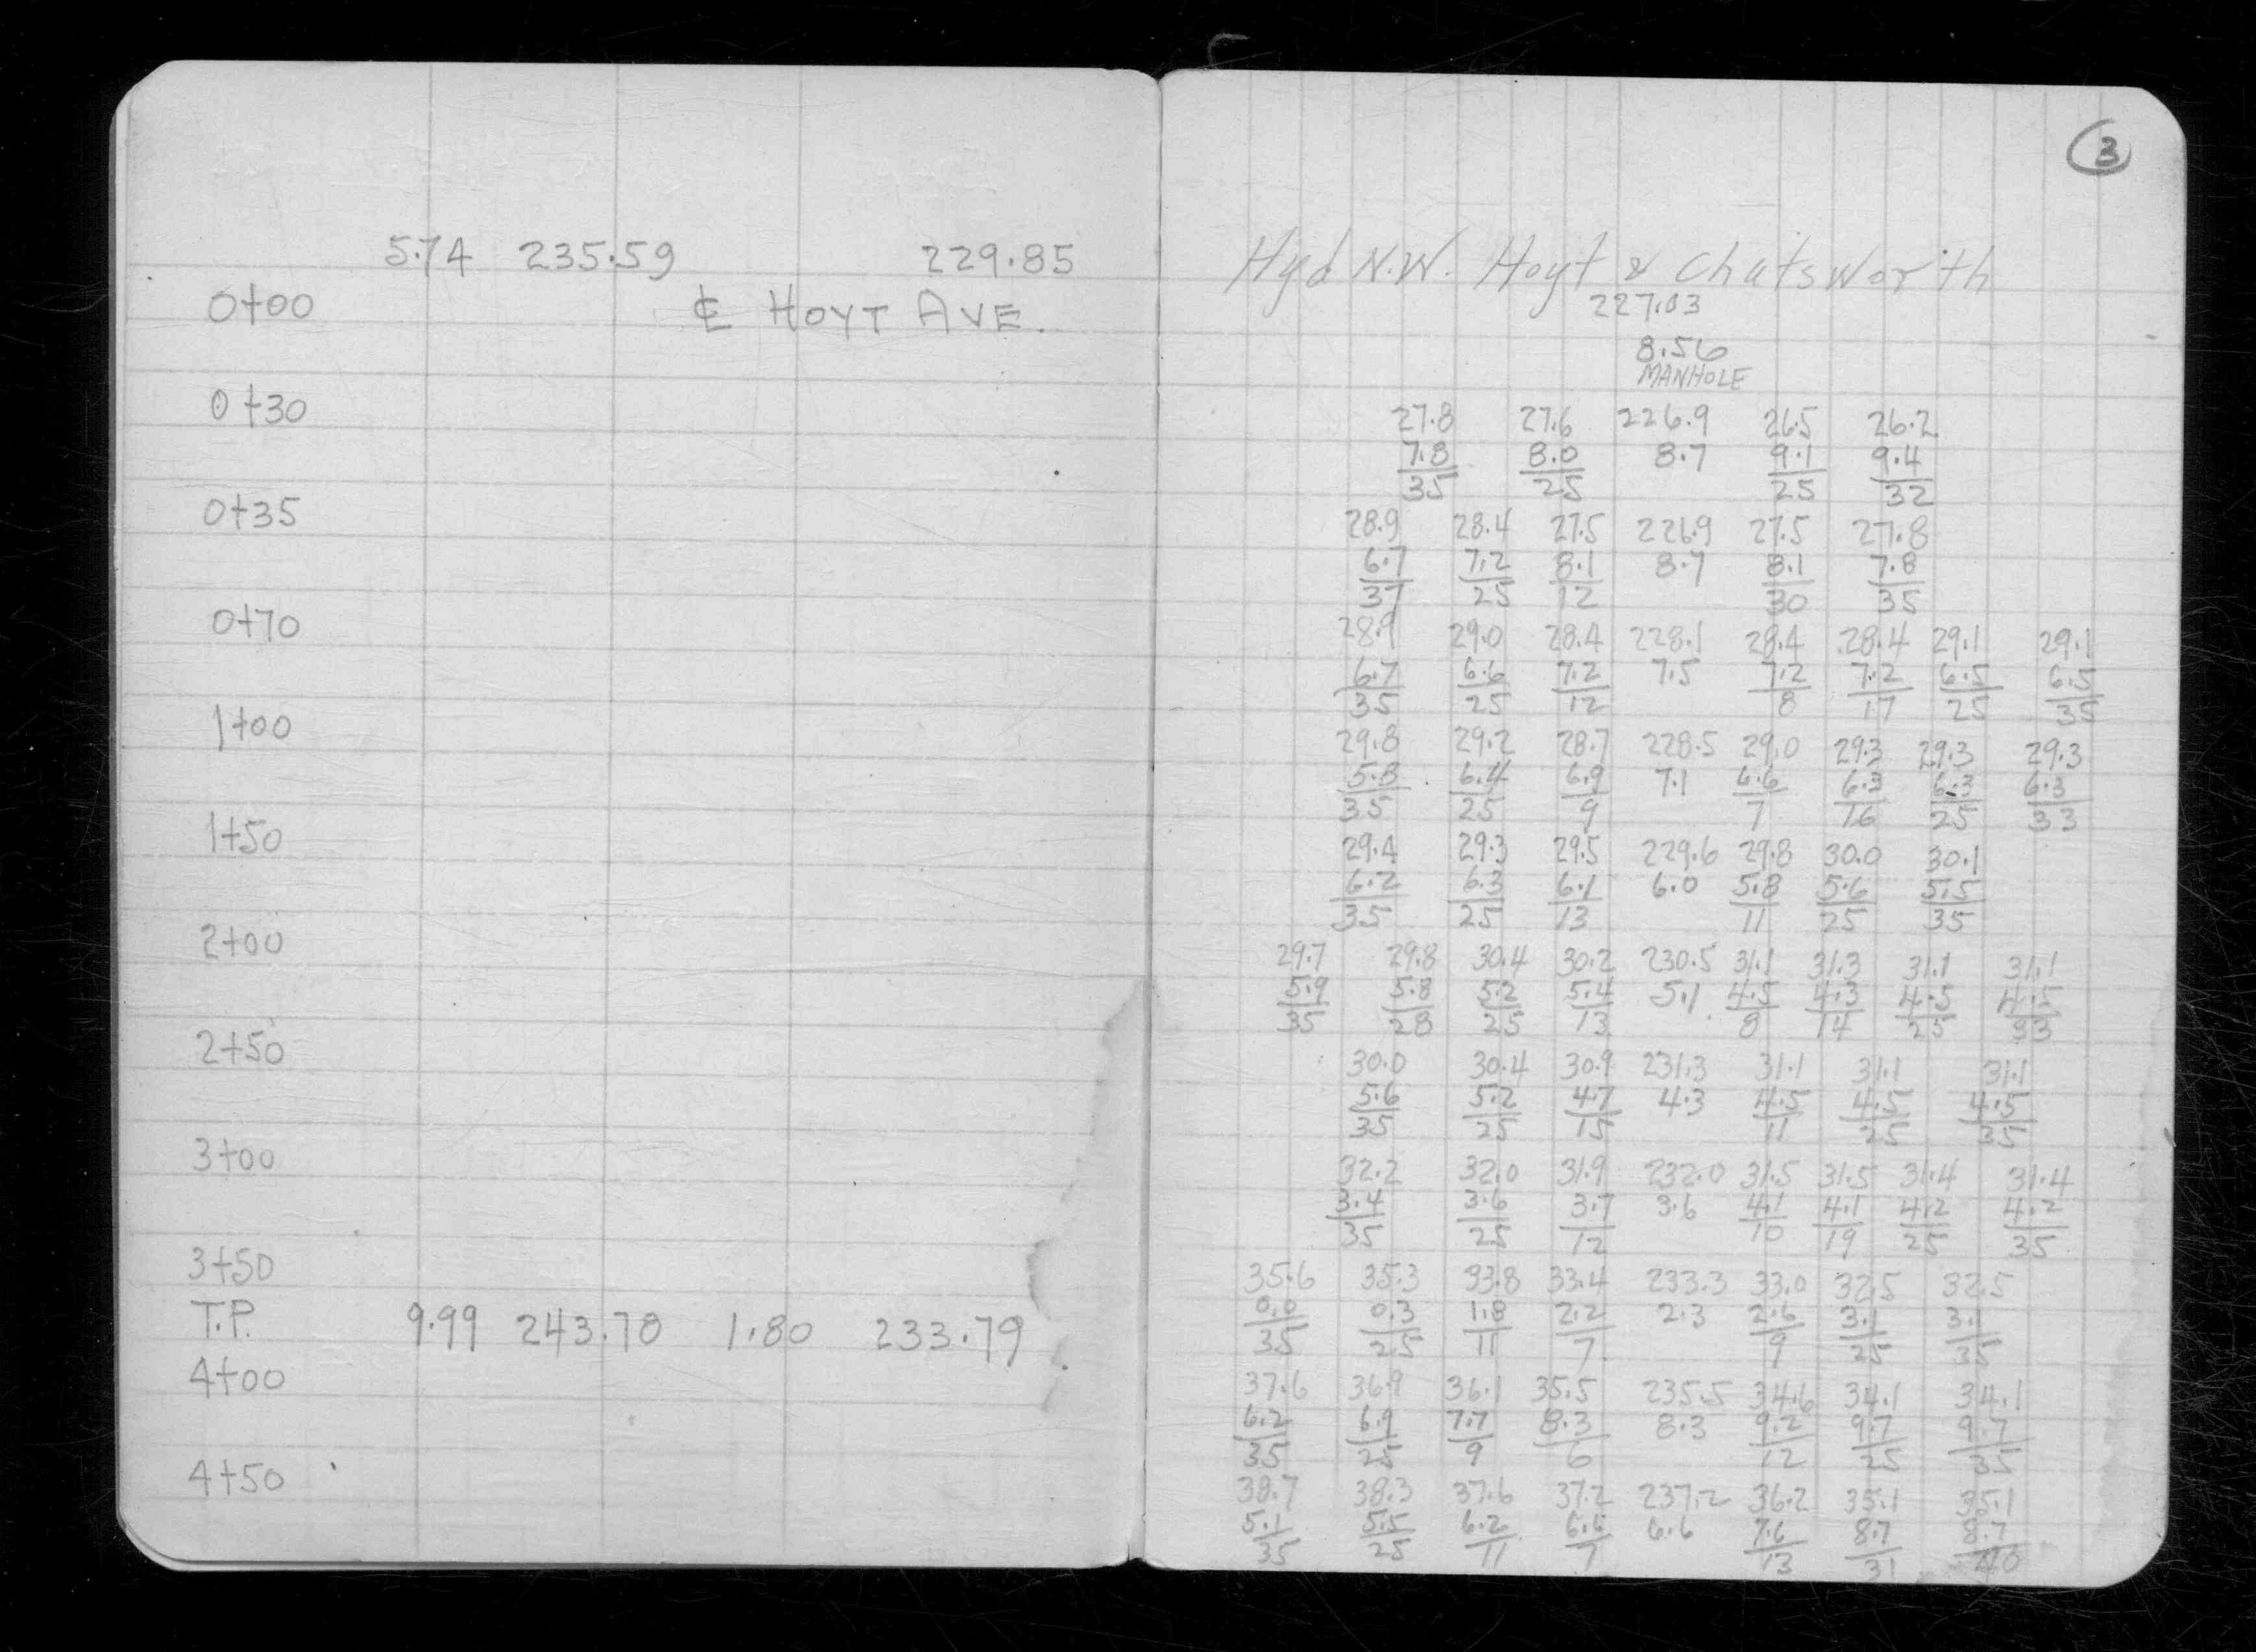 3
5.74 235.59 229.85
0+00 ℄ HOYT AVE.
0+30
0+35
0+70
1+00
1+50
2+00
2+50
3+00
3+50
T.P. 9.99 243.78 1.80 233.79
4+00
4+50
Hyd N.W. Hoyt & Chatsworth
227.03
8.56
MANHOLE
27.8 27.6 226.9 26.5 26.2
7.8 8.0 8.7 9.1 9.4
35 25 25 32
28.9 28.4 27.5 226.9 27.5 27.8
6.7 7.2 8.1 8.7 8.1 7.8
37 25 12 30 35
28.9 29.0 28.4 228.1 28.4 28.4 29.1 29.1
6.7 6.6 7.2 7.5 7.2 7.2 6.5 6.5
35 25 12 8 17 25 35
29.8 29.2 28.7 228.5 29.0 29.3 29.3 29.3
5.8 6.4 6.9 7.1 6.6 6.3 6.3 6.3
35 25 9 7 16 25 33
29.4 29.3 29.5 229.6 29.8 30.0 30.1
6.2 6.3 6.1 6.0 5.8 5.6 5.5
35 25 13 11 25 35
29.7 29.8 30.4 30.2 230.5 31.1 31.3 31.1 31.1
5.9 5.8 5.2 5.4 5.1 4.5 4.3 4.5 4.5
35 28 25 13 8 14 25 33
30.0 30.4 30.9 231.3 31.1 31.1 31.1
5.6 5.2 4.7 4.3 4.5 4.5 4.5
35 25 15 11 25 35
32.2 32.0 31.9 232.0 31.5 31.5 31.4 31.4
3.4 3.6 3.7 3.6 4.1 4.1 4.2 4.2
35 25 12 10 19 25 35
35.6 35.3 33.8 33.4 233.3 33.0 32.5 32.5
0.0 0.3 1.8 2.2 2.3 2.6 3.1 3.1
35 25 11 7 9 25 35
37.6 36.9 36.1 35.5 235.5 34.6 34.1 34.1
6.2 6.9 7.7 8.3 8.3 9.2 9.7 9.7
35 25 9 6 12 25 35
38.7 38.3 37.6 37.2 237.2 36.2 35.1 35.1
5.1 5.5 6.2 6.6 6.6 7.6 8.7 8.7
35 25 11 7 13 31 40